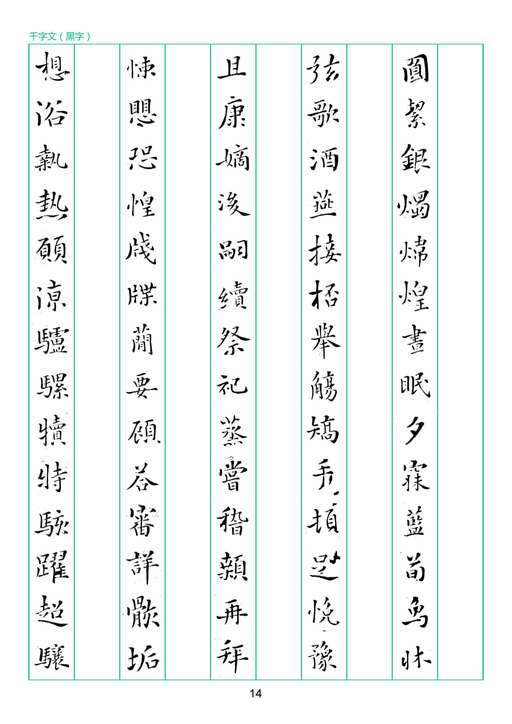 千字文（黒字）
圓絜銀燭煒煌晝眠夕寐藍筍象牀
弦歌酒燕接桮舉觴矯手頓足悅豫
且康嫡後嗣續祭祀蒸嘗稽顙再拜
悚愳恐惶牋牒簡要顧荅審詳骸垢
想浴執熱願涼驢騾犢特駭躍超驤
14